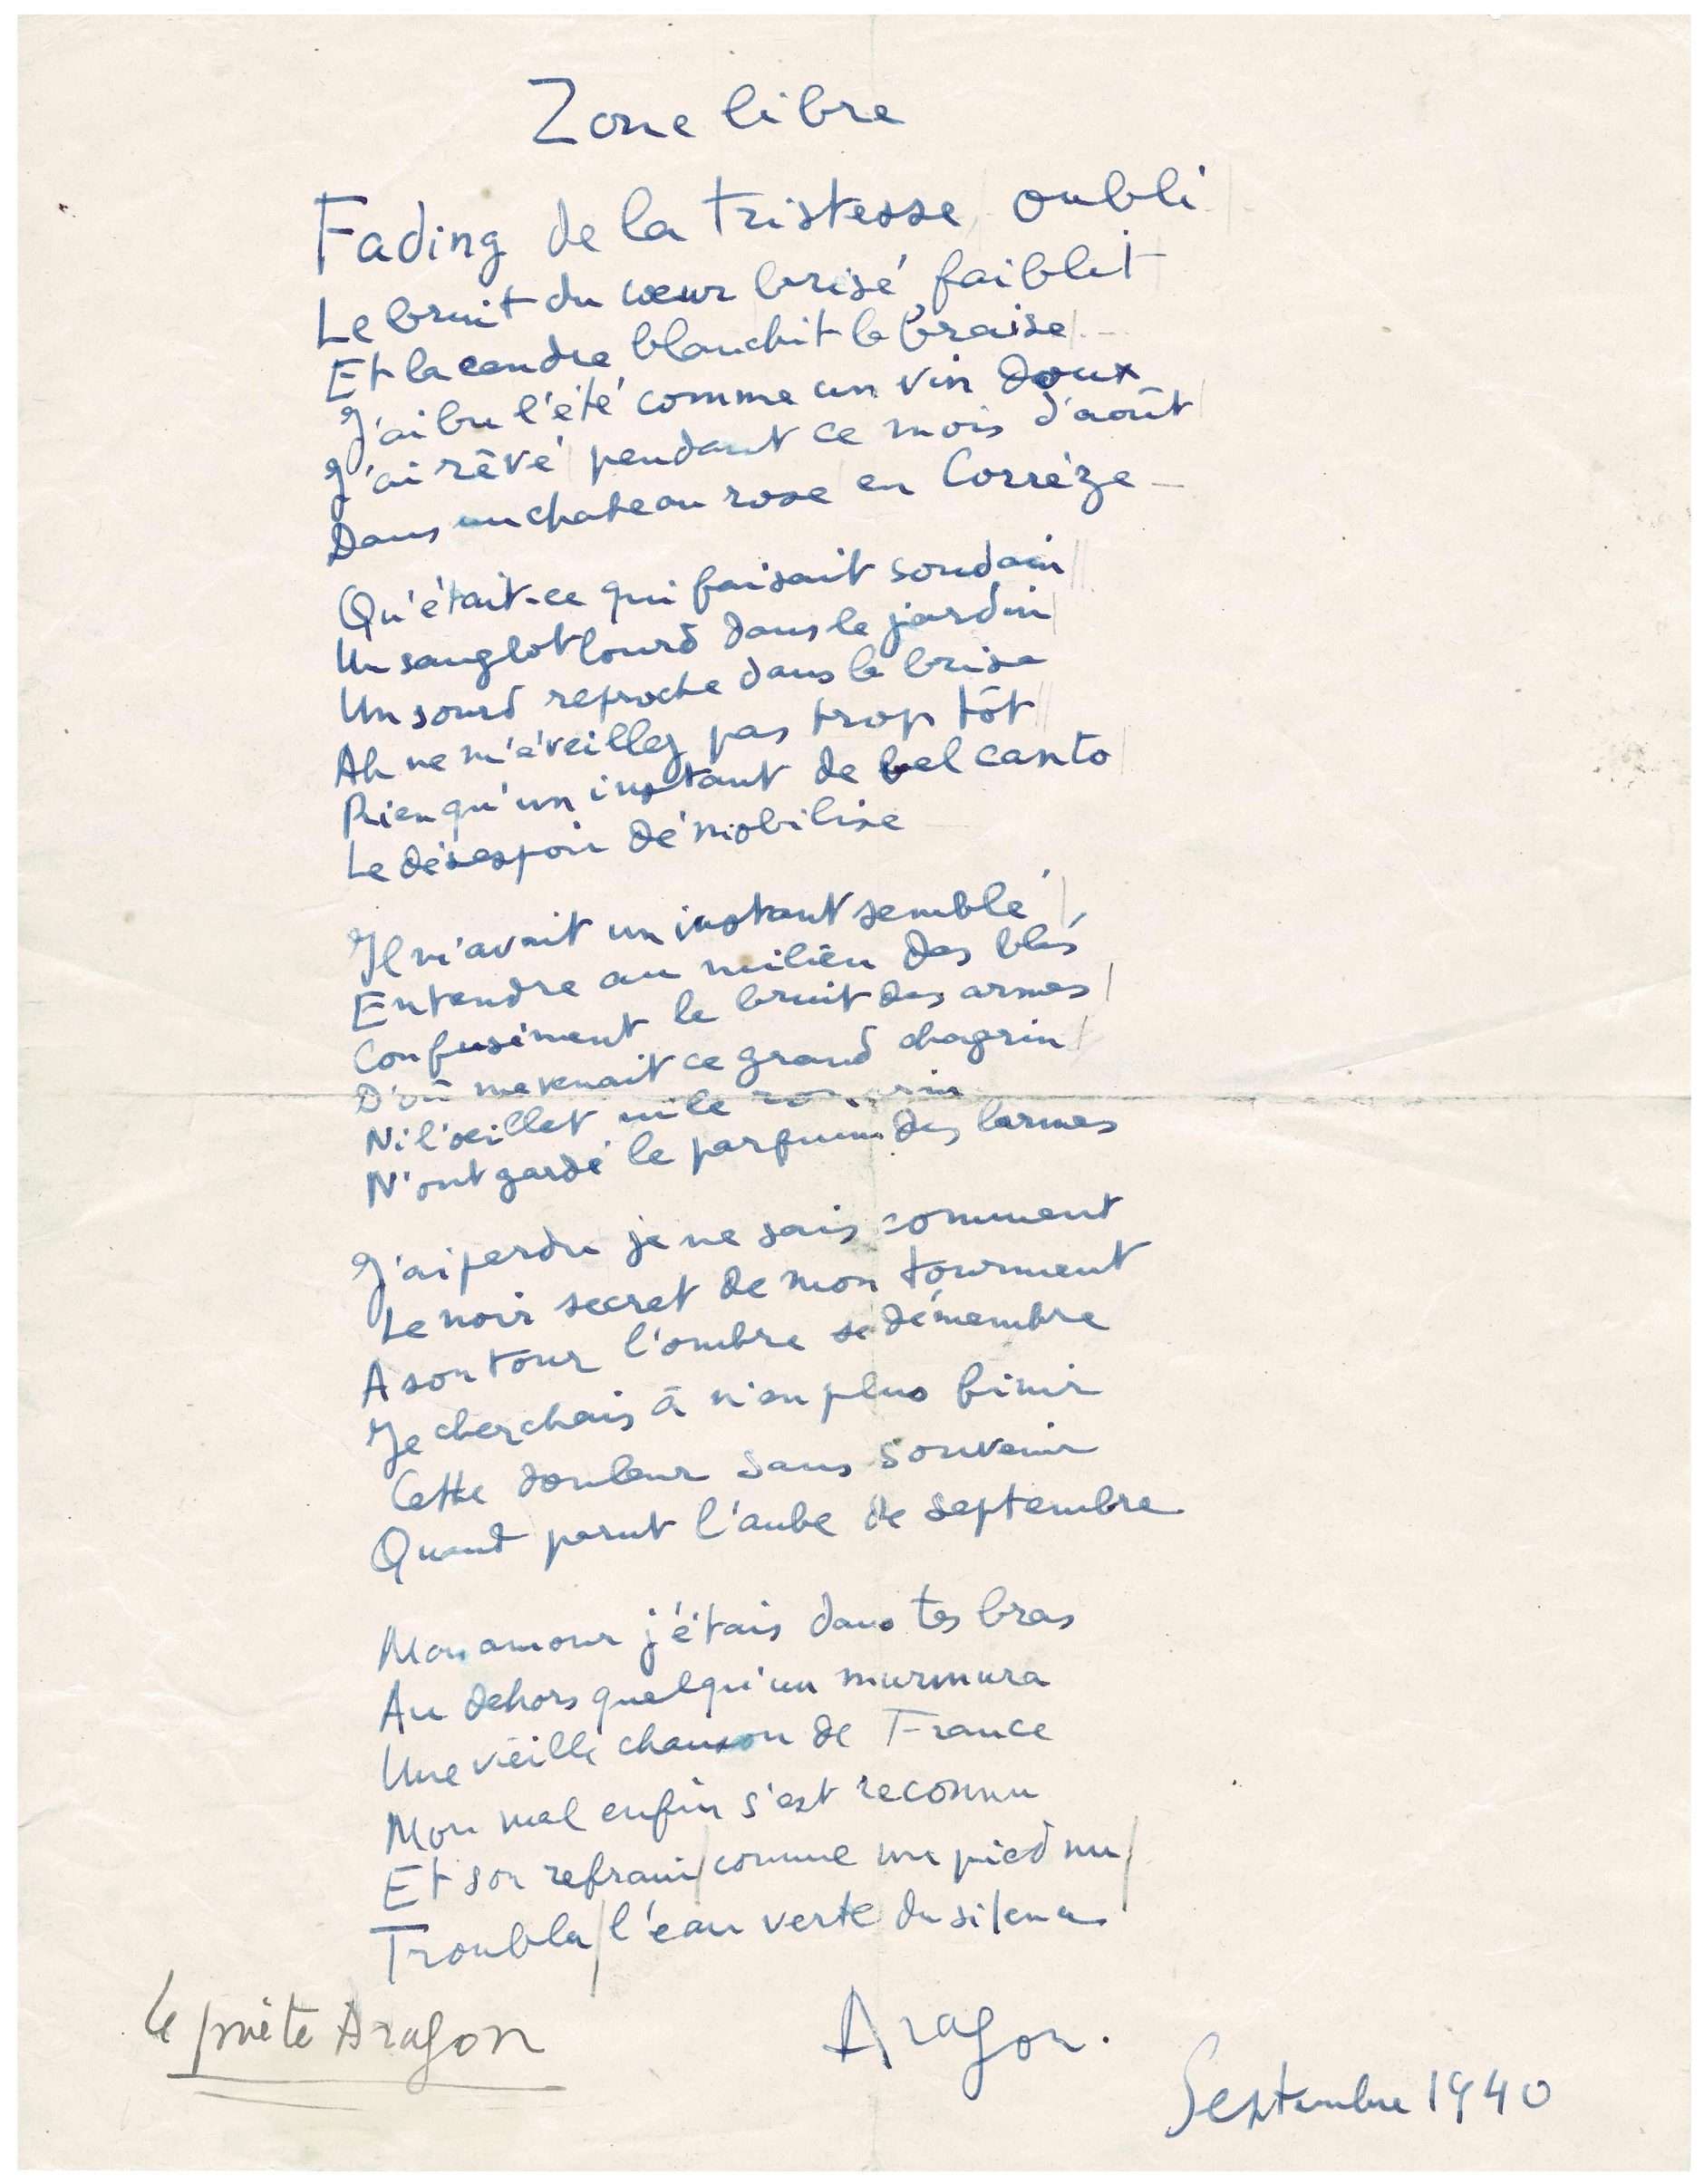 Zone libre
Fading de la tristesse oubli
Le bruit du cœur brisé faiblit
Et la cendre blanchit la braise
J'ai bu l'été comme un vin doux
J'ai rêvé pendant ce mois d'août
Dans un chateau rose en Corrèze
Qu'était-ce qui faisait soudain
Un sanglot lourd dans le jardin
Un sourd reproche dans la brise
Ah ne m'éveillez pas trop tôt
Rien qu'un instant de bel canto
Le désespoir démobilise
Il m'avait un instant semblé
Entendre au milieu des blés
Confusément le bruit des armes
D'où me venait ce grand chagrin
Ni l'œillet ni le romarin
N'ont gardé le parfum des larmes
J'ai perdu je ne sais comment
Le noir secret de mon tourment
A son tour l'ombre se démembre
Je cherchais à n'en plus finir
Cette douleur sans souvenir
Quand parut l'aube de septembre
Mon amour j'étais dans tes bras
Au dehors quelqu'un murmura
Une vieille chanson de France
Mon mal enfin s'est reconnu
Et son refrain comme un pied nu
Troubla l'eau verte du silence
Aragon.
le poète Aragon
Septembre 1940